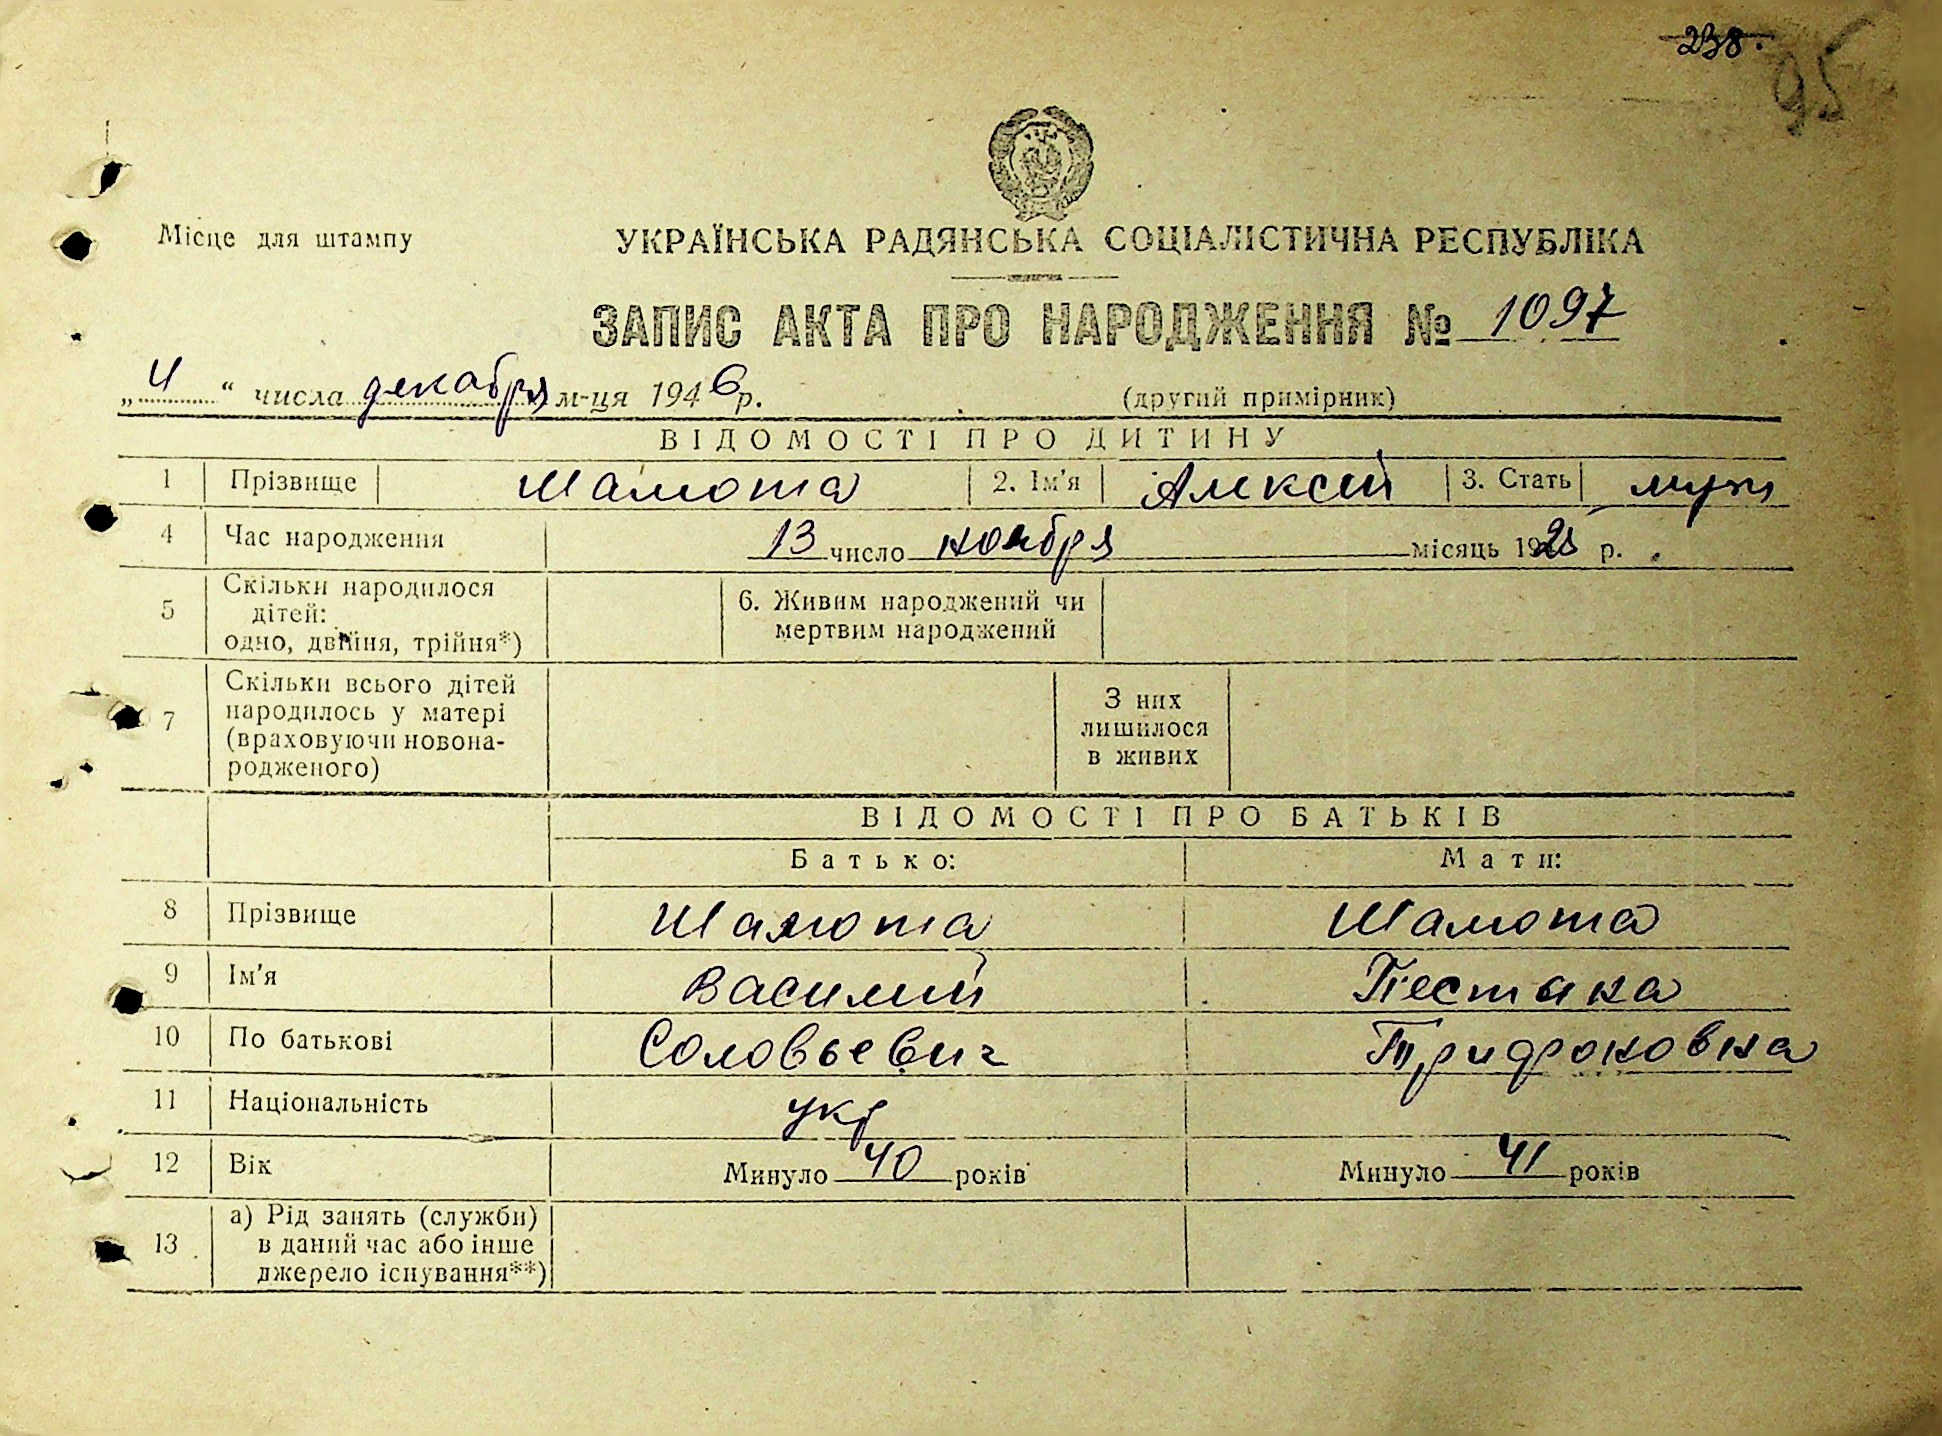 238.
95
Місце для штампу
УКРАЇНСЬКА РАДЯНСЬКА СОЦІАЛІСТИЧНА РЕСПУБЛІКА
ЗАПИС АКТА ПРО НАРОДЖЕННЯ № 1097
„4“ числа декабря м-ця 1946 р. (другий примірник)
ВІДОМОСТІ ПРО ДИТИНУ
1 Прізвище Шамота 2. Ім'я Алексей 3. Стать муж
4 Час народження 13 число ноября місяць 19 р.
5 Скільки народилося дітей: одно, двійня, трійня*) 6. Живим народжений чи мертвим народжений
7 Скільки всього дітей народилось у матері (враховуючи новонародженого) З них лишилося в живих
ВІДОМОСТІ ПРО БАТЬКІВ
Батько: Мати:
8 Прізвище Шамота Шамота
9 Ім'я Василий Пестака
10 По батькові Соловьевич Трифоновна
11 Національність укр
12 Вік Минуло 40 років Минуло 41 років
13 а) Рід занять (служби) в даний час або інше джерело існування**)